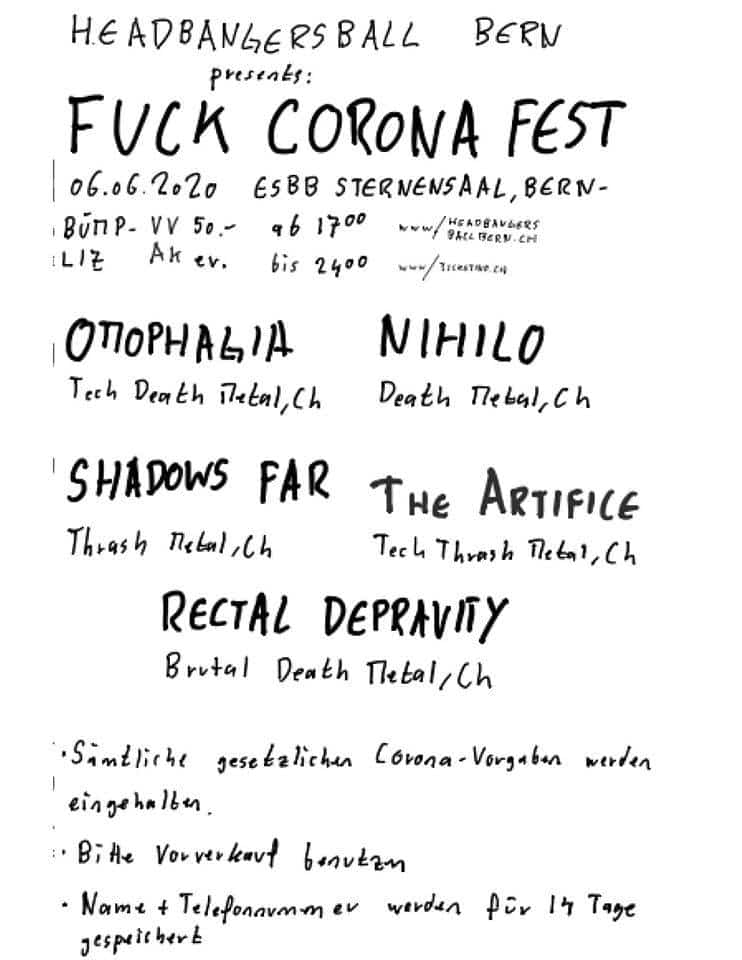 HEADBANGERSBALL BERN
presents:
FUCK CORONA FEST
06.06.2020 ESBB STERNENSAAL, BERN-
BÜMP- VV 50.- ab 17⁰⁰ www/HEADBANGERS
BALLBERN.CH
LIZ AK ev. bis 24⁰⁰ www/TICKETINO.CH
OMOPHAGIA NIHILO
Tech Death Metal, Ch Death Metal, Ch
SHADOWS FAR THE ARTIFICE
Thrash Metal, Ch Tech Thrash Metal, Ch
RECTAL DEPRAVITY
Brutal Death Metal, Ch
· Sämtliche gesetzlichen Corona-Vorgaben werden
eingehalten.
· Bitte Vorverkauf benutzen
· Name + Telefonnummer werden für 14 Tage
gespeichert